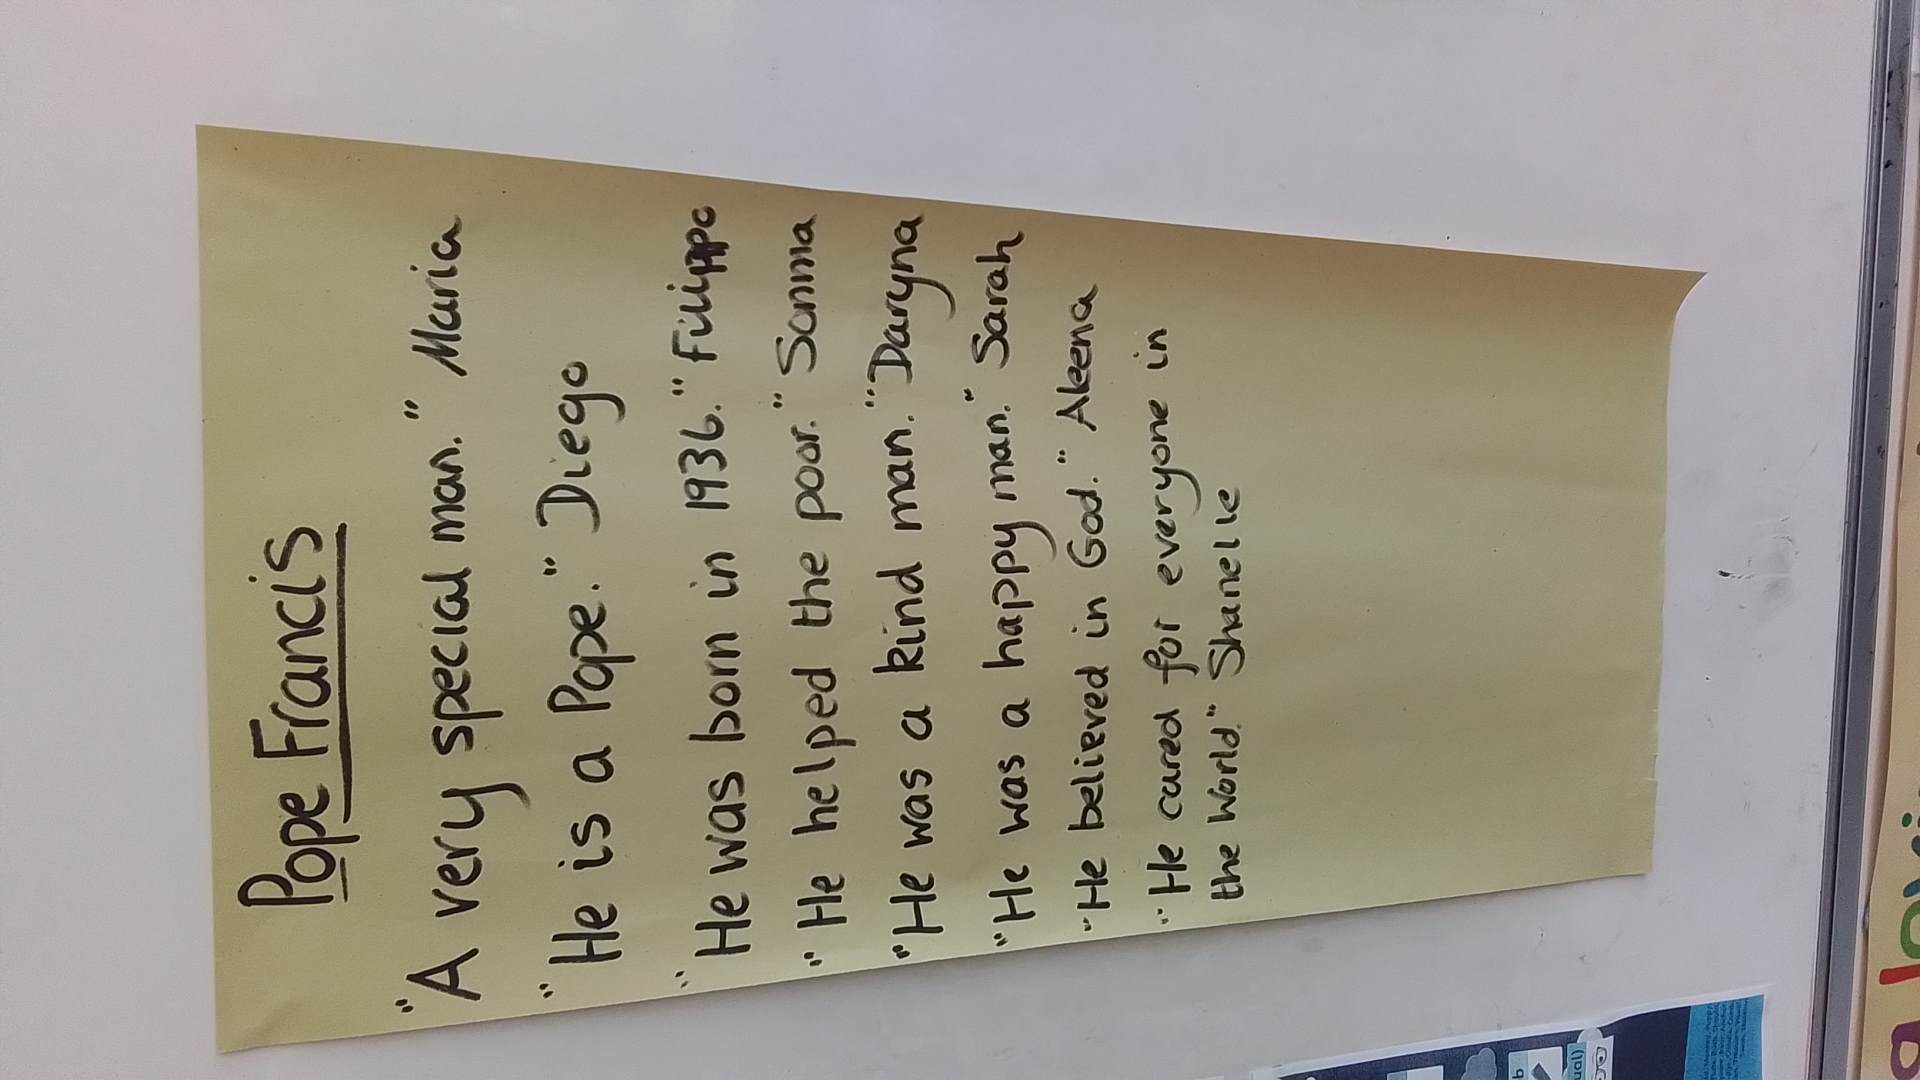 Pope Francis
"A very special man." Maria
"He is a Pope." Diego
"He was born in 1936." Filippo
"He helped the poor." Somma
"He was a kind man." Daryna
"He was a happy man." Sarah
"He believed in God." Aleena
"He cared for everyone in
the world." Shanelle
b
ual)